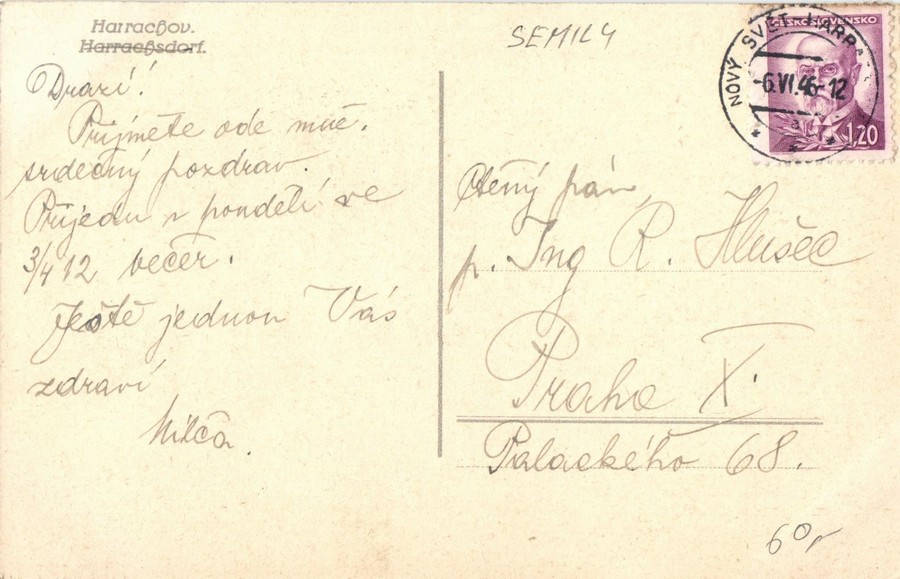 Harrachov.
Harrachsdorf.
SEMILY
Drazí!
Přijměte ode mne.
srdečný pozdrav.
Přijedu v pondělí ve
3/4 12 večer.
Ještě jednou Vás
zdraví
Milča.
ČESKOSLOVENSKO
1,20
NOVÝ SVĚT HARRA
-6.VI.46-12
a
Ctěný pán
p. Ing R. Hlušec
Praha X.
Palackého 68.
60,-